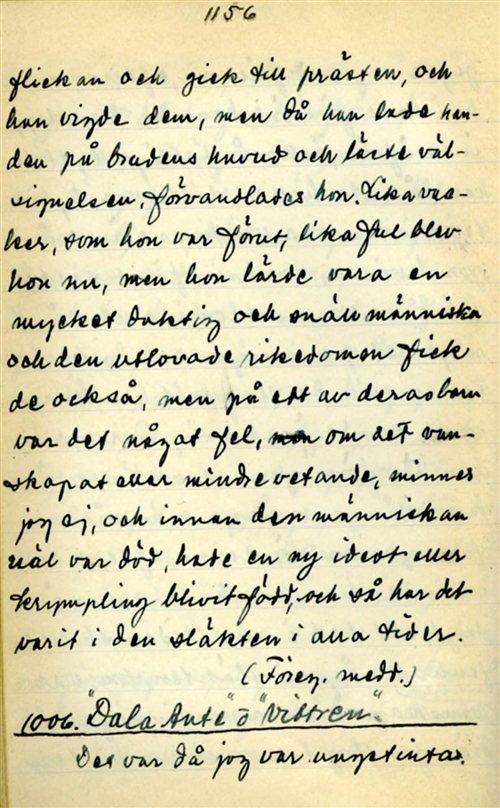 1156
flickan och gick till prästen, och
han vigde dem, men då han lade han-
den på brudens huvud och läste väl-
signelsen, förvandlades hon. Lika vac-
ker, som hon var förut, lika ful blev
hon nu, men hon lärde vara en
mycket duktig och snäll människa
och den utlovade rikedomen fick
de också, men på ett av deras barn
var det något fel, om det van-
skapat eller mindre vetande, minnes
jag ej, och innan den människan
väl var död, hade en ny idiot eller
krympling blivit född, och så har det
varit i den släkten i alla tider.
(Föreg. medd.)
1006. "Dala Ante" o "Vittren".
Det var då jag var